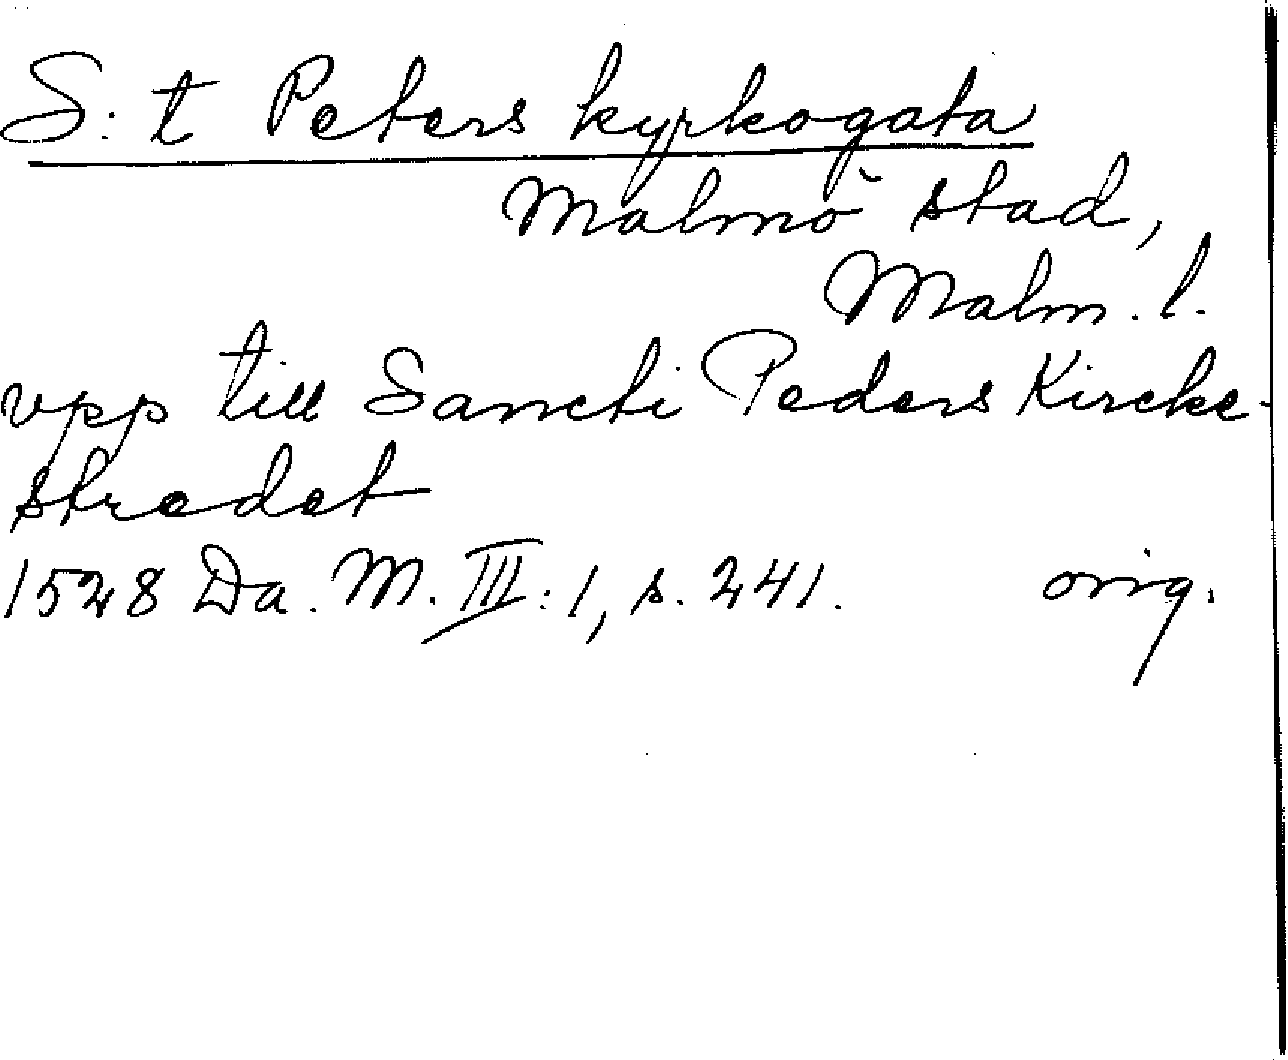 S:t Peters kyrkogata
Malmö stad,
Malm. l.
vpp till Sancti Peders Kircke-
stredet
1528 Da. M. III:1, s. 241. orig.